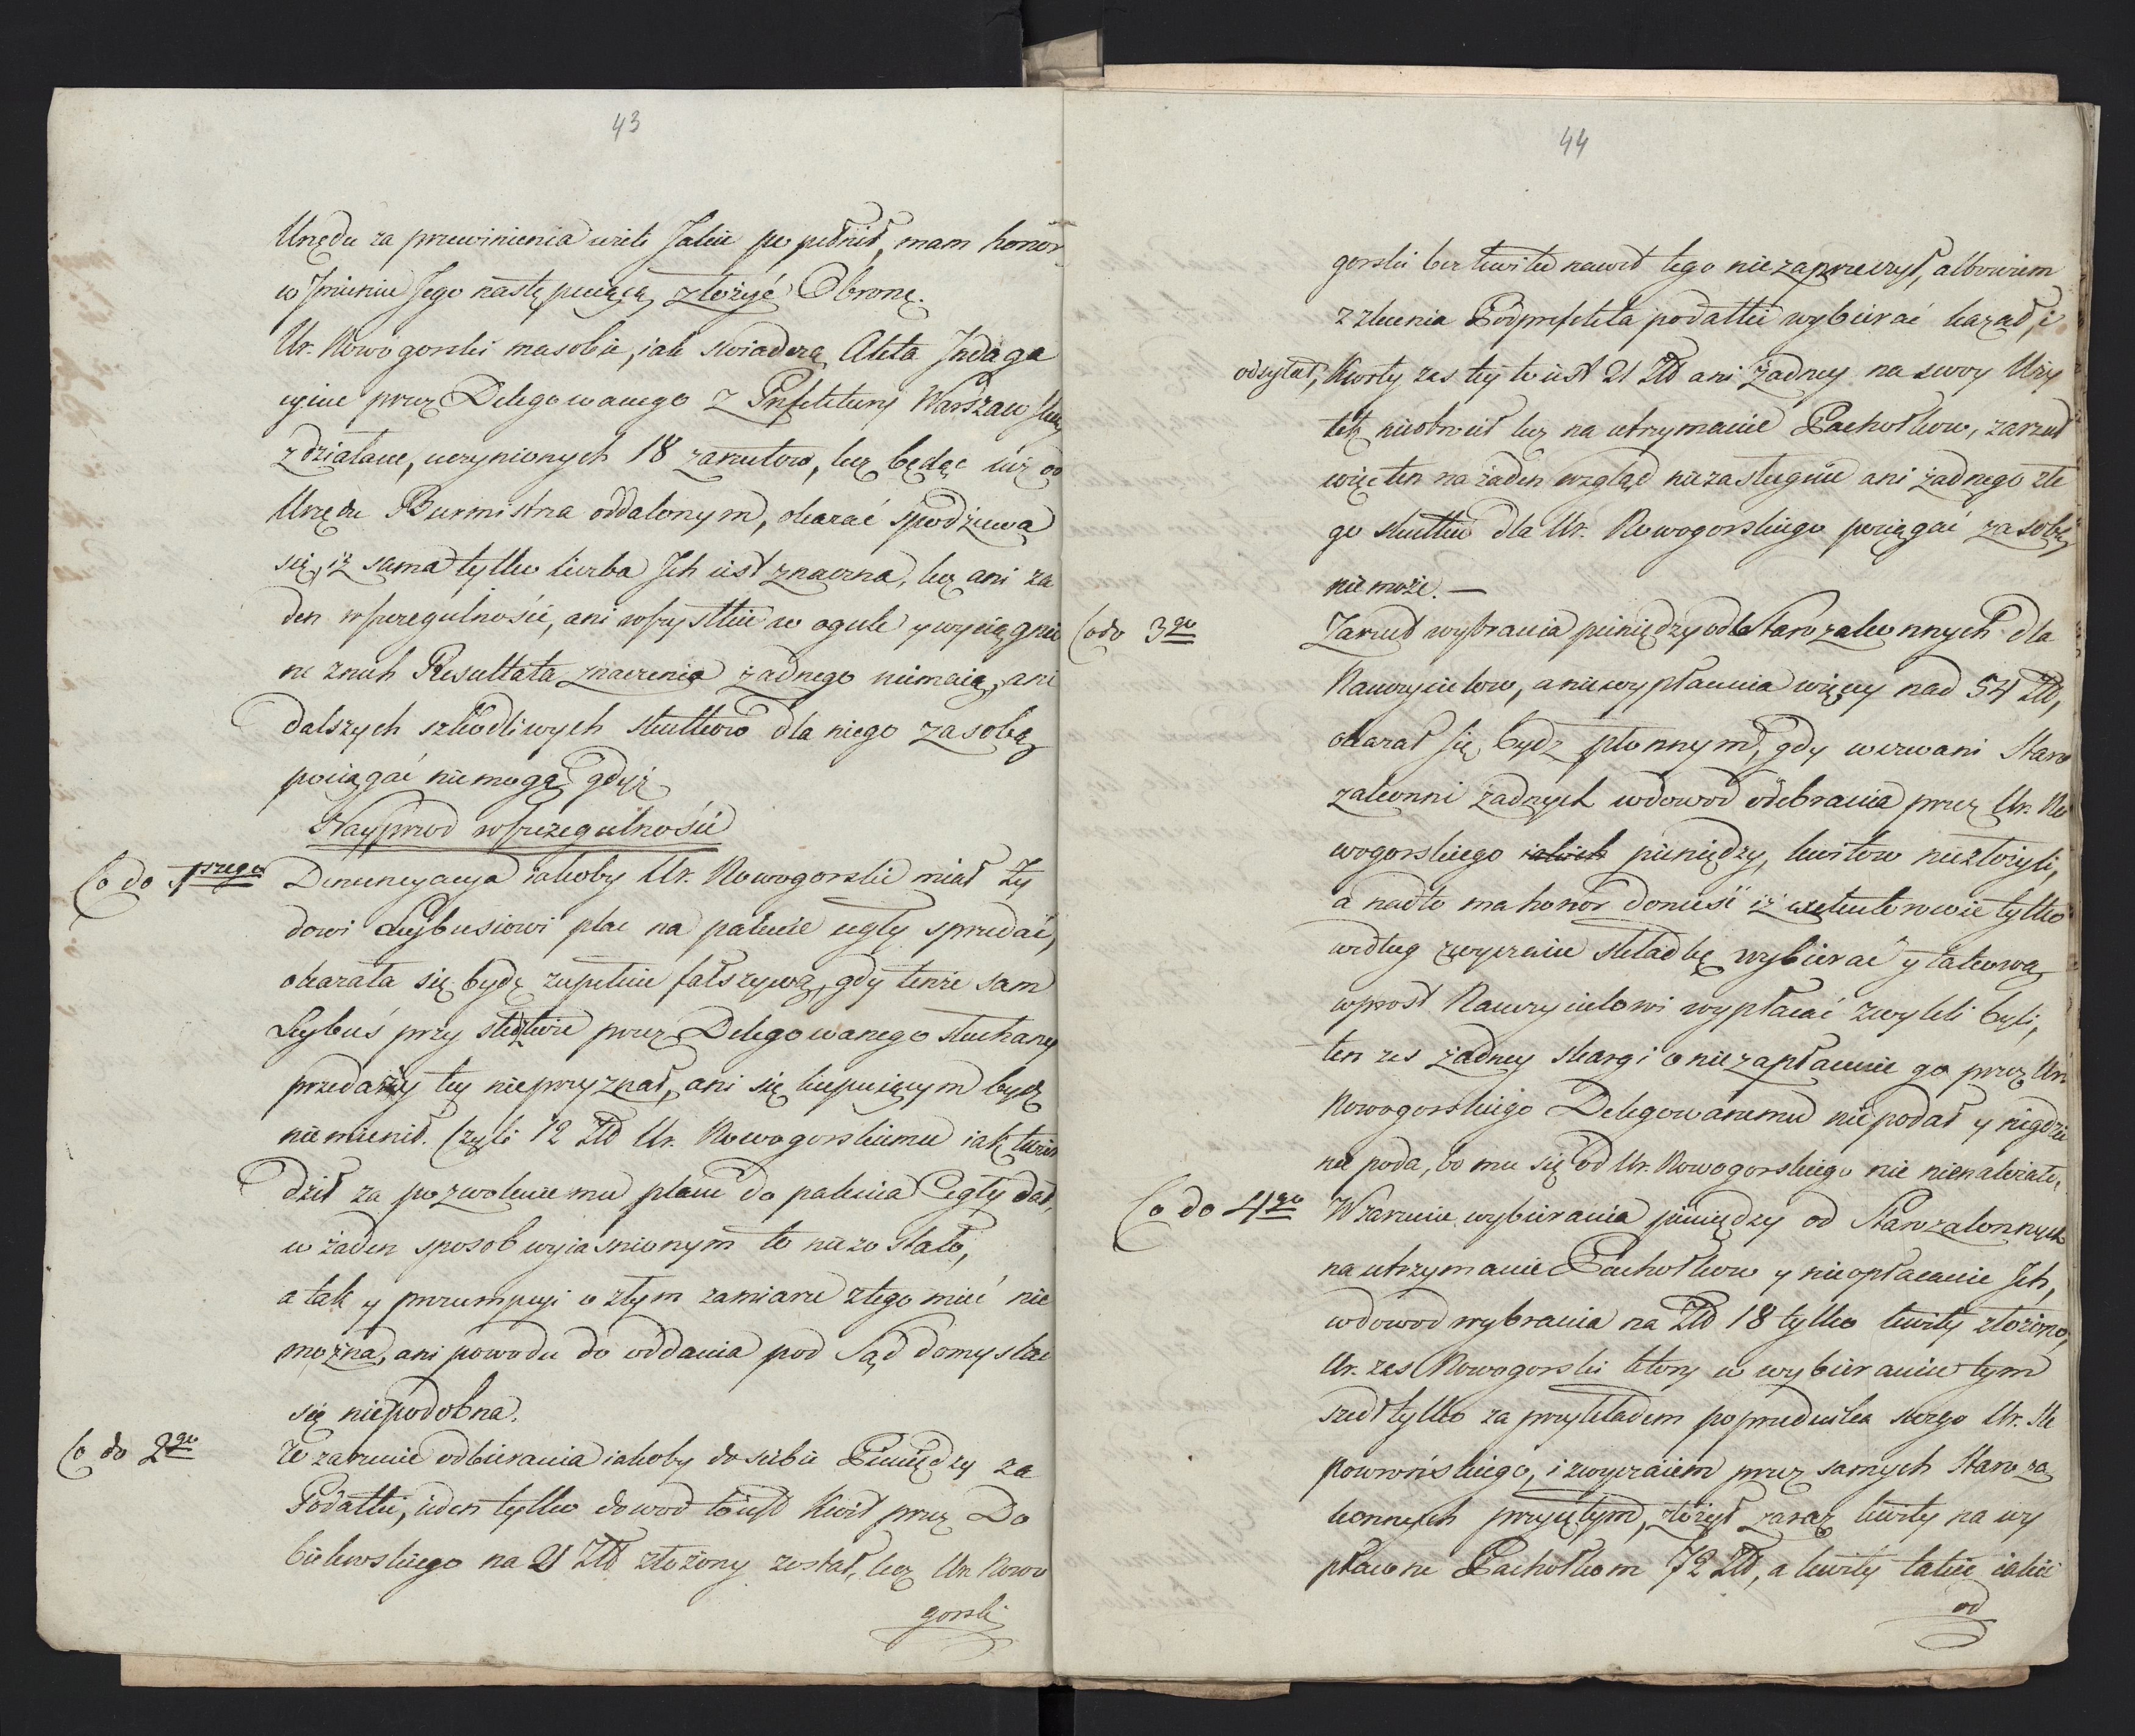 43
Urzędu za przewinienia wiele Jakie popełnił, mam honor
w Jmieniu Jego następuiącą złożyć Obronę.
Ur. Nowogorski ma sobie, iak swiadczą Akta Jndaga
cyine przez Delegowanego z Prefektury Warszawskiey
zdziałane, uczynionych 18 zarzutow, lecz będąc iuż od
Urzędu Burmistrza oddalonym, okazać spodziewa
się, iż sama tylko liczba Jch iest znaczna, lecz ani ża
den wszczegulnosci, ani wszystkie w ogule y wyciągnie
ne znich Resultata znaczenia żadnego niemaią, ani
dalszych szkodliwych skutkow dla niego za sobą
pociągać niemogą gdyż
Nayprzod wszczegulnosci
Co do 1szego Denuncyacya iakoby Ur. Nowogorski miał Ży
dowi Leybusiowi plac na palenie cegły sprzedać,
okazała się bydź zupełnie fałszywą, gdy tenże sam
Leybuś przy sledztwie przez Delegowanego słuchany
przedaży tey nieprzyznał, ani się kupuiącym bydź
niemienił. Czyli 12 Złł Ur. Nowogorskiemu iak twier
dził za pozwolenie mu placu do palenia Cegły dał,
w żaden sposob wyiasnionym to niezostało,
a tak y prezumpcyi o złym zamiarze złego mieć nie
można, ani powodu do oddania pod Sąd domyslać
się niepodobna.
Co do 2go W zarzucie odbierania iakoby do siebie Pieniędzy za
Podatki, ieden tylko dowod to iest Kwit przez Do
bielewskiego na 21 Złł złożony został, lecz Ur. Nowo
gorski
44
gorski bez kwitu nawet tego niezaprzeczył, albowiem
z zlecenia Podprefekta podatki wybierać kazał, i
odsyłał, Kwoty zas tey to iest 21 Złł ani żadney na swoy Uży
tek nieobrucił lecz na utrzymanie Pachołkow, zarzut
więc ten na żaden wzgląd niezasługuie ani żadnego złe
go skutku dla Ur. Nowogorskiego pociągać za sobą
niemoże. —
Co do 3go Zarzut wybrania pieniędzy od Starozakonnych dla
Nauczycielow, a niewypłacenia więcey nad 54 Złł,
okazał się bydz płonnym, gdy wezwani Staro
zakonni żadnych wdowod odebrania przez Ur. No
wogorskiego iakich pieniędzy, kwitow niezłożyli,
a nadto ma honor donieść iż exekutorowie tylko
według zwyczaiu składkę wybierać y takową
wprost Nauczycielowi wypłacać zwykli byli,
ten zes żadney skargi o niezapłacenie go przez Ur.
Nowogorskiego Delegowanemu niepodał y nigdzie
nie poda, bo mu się od Ur. Nowogorskiego nie nienależało,
Co do 4go W zarzucie wybierania pieniędzy od Starozakonnych
na utrzymanie Pachołkow y nieopłacanie Jch,
wdowod wybrania na Złł 18 tylko kwity złożono,
Ur. zas Nowogorski ktory w wybieraniu tym
szedł tylko za przykładem poprzednika swego Ur.
i zwyczaiem przez samych Staroza
konnych przyiętym, złożył zaraz kwity na wy
płacone Pachołkom 72 Złł, a kwity takie iakie
od